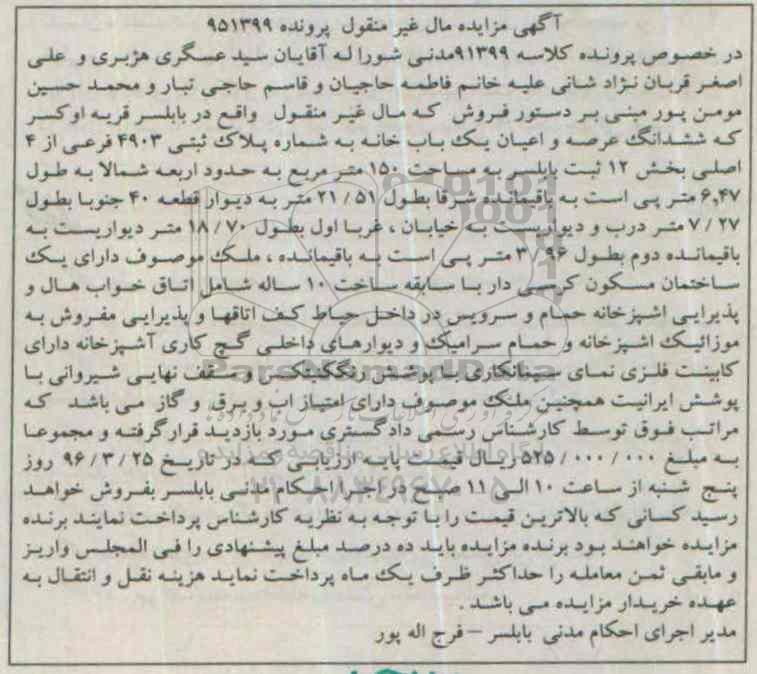 آگهی مزایده مال غیر منقول پرونده ۹۵۱۳۹۹
در خصوص پرونده کلاسه ۹۱۳۹۹مدنی شورا له آقایان سید عسگری هژبری و علی
اصغر قربان نژاد شانی علیه خانم فاطمه حاجیان و قاسم حاجی تبار و محمد حسین
مومن پور مبنی بر دستور فروش که مال غیر منقول واقع در بابلسر قریه اوکسر
که ششدانگ عرصه و اعیان یک باب خانه به شماره پلاک ثبتی ۴۹۰۳ فرعی از ۴
اصلی بخش ۱۲ ثبت بابلسر به مساحت ۱۵۰ متر مربع به حدود اربعه شمالا به طول
۶,۴۷ متر پی است به باقیمانده شرقا بطول ۵۱ / ۲۱ متر به دیوار قطعه ۴۰ جنوبا بطول
۲۷ / ۷ متر درب و دیواریست به خیابان ، غربا اول بطول ۷۰ / ۱۸ متر دیواریست به
باقیمانده دوم بطول ۹۶ / ۳ متر پی است به باقیمانده ، ملک موصوف دارای یک
ساختمان مسکون کرسی دار با سابقه ساخت ۱۰ ساله شامل اتاق خواب هال و
پذیرایی اشپزخانه حمام و سرویس در داخل حیاط کف اتاقها و پذیرایی مفروش به
موزائیک اشپزخانه و حمام سرامیک و دیوارهای داخلی گچ کاری آشپزخانه دارای
کابینت فلزی نمای سیمانکاری با پوشش رنگ کنیتکس و سقف نهایی شیروانی با
پوشش ایرانیت همچنین ملک موصوف دارای امتیاز اب و برق و گاز می باشد که
مراتب فوق توسط کارشناس رسمی دادگستری مورد بازدید قرار گرفته و مجموعا
به مبلغ ۰۰۰ / ۰۰۰ / ۵۲۵ ریال قیمت پایه ارزیابی که در تاریخ ۲۵ / ۳ / ۹۶ روز
پنج شنبه از ساعت ۱۰ الی ۱۱ صبح در اجرا احکام مدنی بابلسر بفروش خواهد
رسید کسانی که بالاترین قیمت را با توجه به نظریه کارشناس پرداخت نمایند برنده
مزایده خواهند بود برنده مزایده باید ده درصد مبلغ پیشنهادی را فی المجلس واریز
و مابقی ثمن معامله را حداکثر ظرف یک ماه پرداخت نماید هزینه نقل و انتقال به
عهده خریدار مزایده می باشد .
مدیر اجرای احکام مدنی بابلسر – فرج اله پور
ParsNamadData